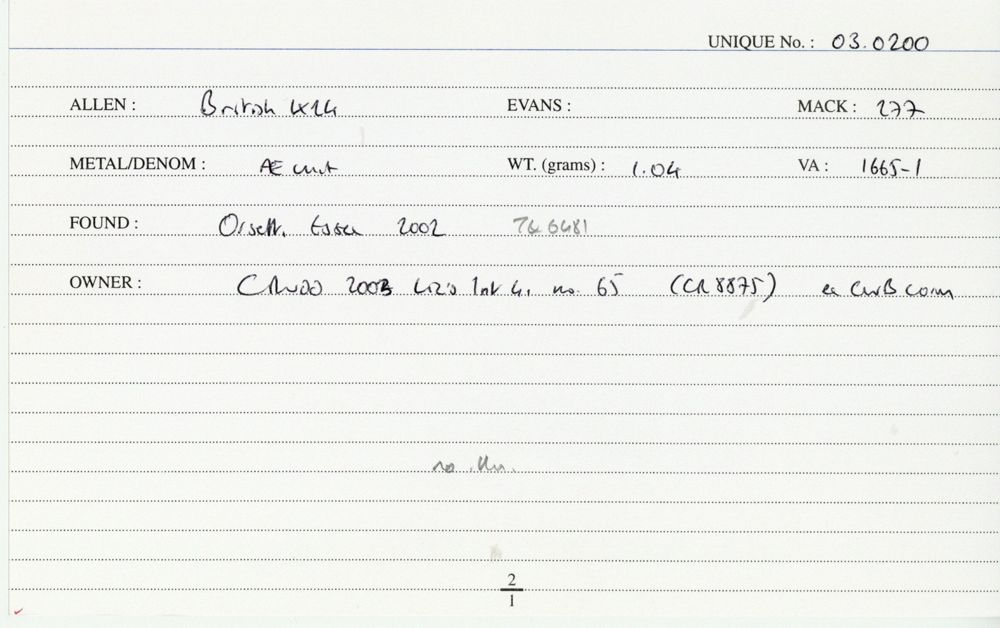 UNIQUE No. : 03.0200
ALLEN : British LX24 EVANS : MACK : 277
METAL/DENOM : Æ unit WT. (grams) : 1.04 VA : 1665-1
FOUND : Orsett, Essex 2002 TQ 6481
OWNER : 2003 no. 65 (CR 8875) ex
no illu.
2
1